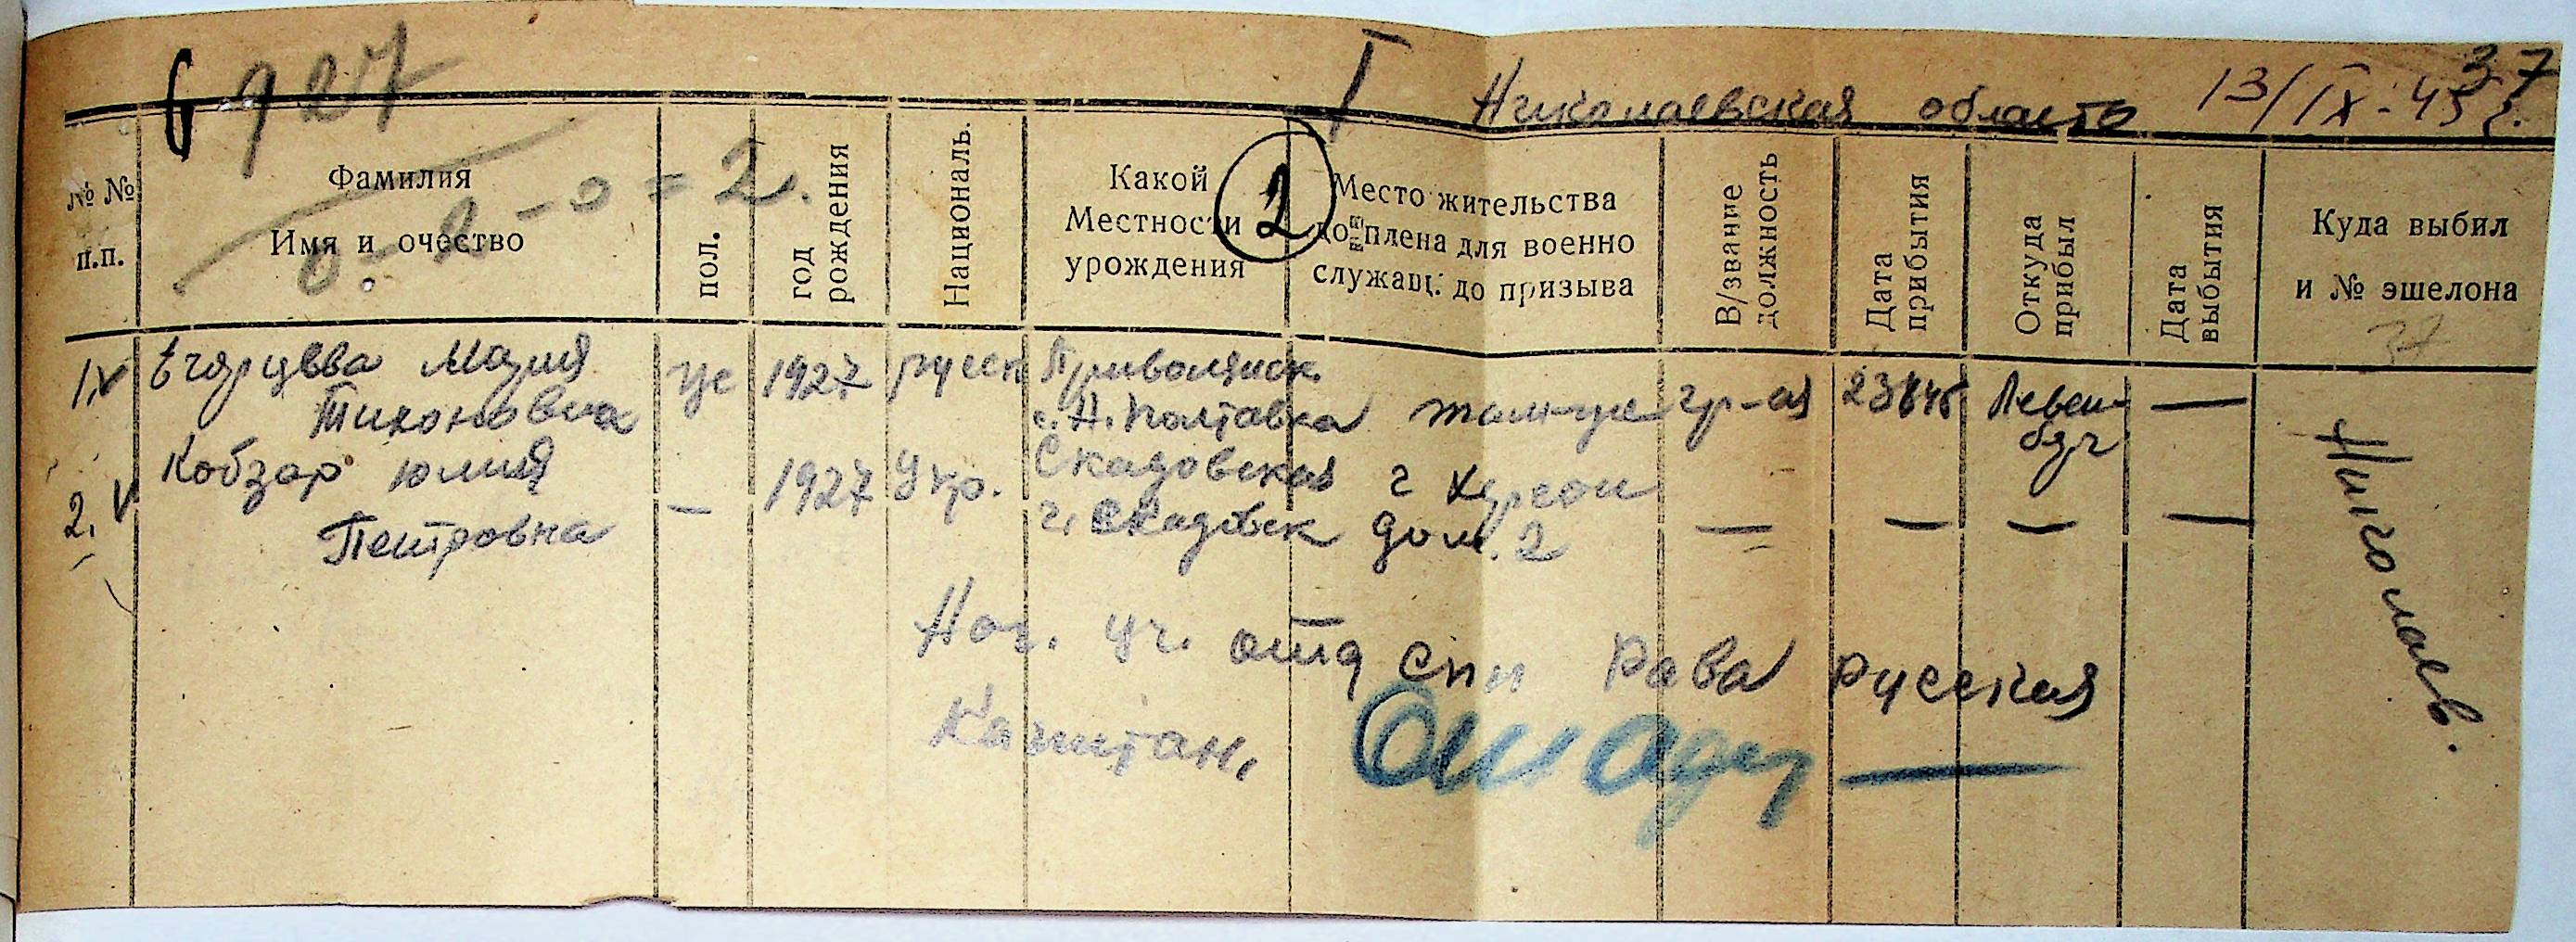 6 927 I Николаевская область 13/IX-45 г. 37
№ №
п.п.
Фамилия
Имя и очество
пол.
год
рождения
Националь.
Какой
Местности
урождения
2
Место жительства
до плена для военно
служащ. до призыва
В/звание
должность
Дата
прибытия
Откуда
прибыл
Дата
выбытия
Куда выбил
и № эшелона
0-2-0=2.
1. Мария Тихоновна же 1927 русск Приволянск.
с. Н. Полтавка там-же гр-ая Левен-
бур —
2. Кобзар Юлия Петровна — 1927 Укр. Скадовская
г. Скадовск г Херсон
дом. 2 — — — —
Николаев.
Нач. уч. отд спп Рава Русская
Капитан.